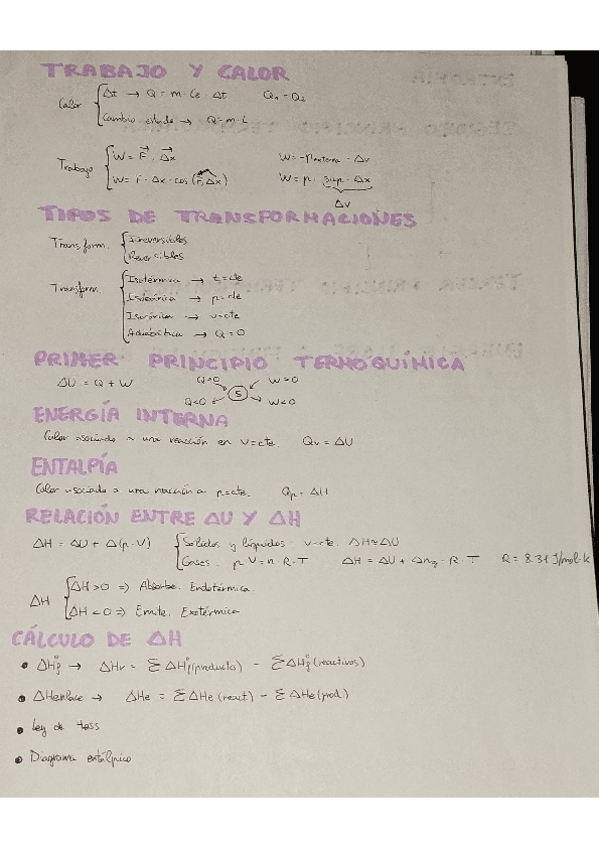 TRABAJO Y CALOR
Calor { Δt → Q = m · Ce · Δt Q₁ = Q₂
Cambio estado → Q = m · L
Trabajo { W = F⃗ · Δx⃗ W = -p externa · Δv
W = F · Δx · cos (F⃗, Δx⃗) W = p · Sup · Δx
Δv
TIPOS DE TRANSFORMACIONES
Transform. { Irreversibles
Reversibles
Transform. { Isotérmica → t = cte
Isobárica → p = cte
Isocórica → v = cte
Adiabática → Q = 0
PRIMER PRINCIPIO TERMOQUÍMICA
ΔU = Q + W Q>0 W>0
S
Q<0 W<0
ENERGÍA INTERNA
Calor asociado a una reacción en V=cte. Qv = ΔU
ENTALPÍA
Calor asociado a una reacción a p=cte. Qp = ΔH
RELACIÓN ENTRE ΔU Y ΔH
ΔH = ΔU + Δ(p·V) { Solidos y líquidos · v=cte. ΔH≈ΔU
Gases. p·V=n·R·T ΔH = ΔU + Δng · R · T R = 8.31 J/mol·k
ΔH { ΔH>0 => Absorbe. Endotérmica.
ΔH<0 => Emite. Exotérmica
CÁLCULO DE ΔH
• ΔHf° → ΔHr = ΣΔHf°(producto) - ΣΔHf°(reactivos)
• ΔHenlace → ΔHe = ΣΔHe (react.) - ΣΔHe (prod.)
• Ley de Hess
• Diagrama entálpico